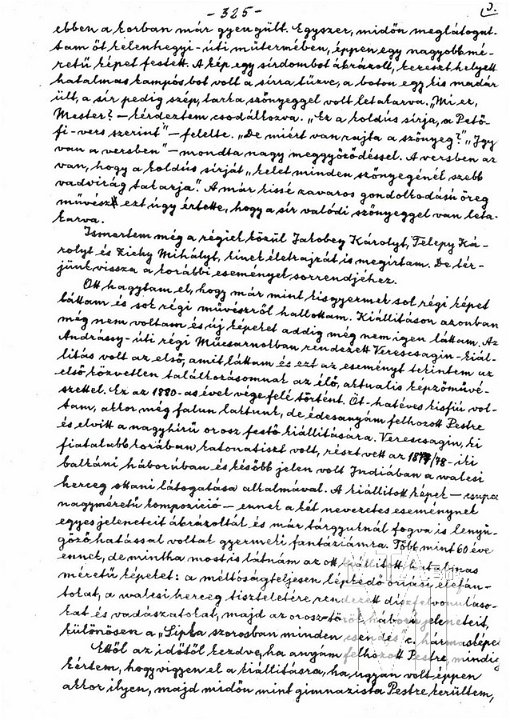 - 325 -
3.
ebben a korban már gyengült. Egyszer, midőn meglátogat-
tam őt kelenhegyi-úti műtermében, éppen egy nagyobb mé-
retű képet festett. A kép egy sírdombot ábrázolt, kereszt helyett
hatalmas kampós bot volt a sírra tűzve, a boton egy kis madár
ült, a sír pedig szép, tarka szőnyeggel volt letakarva. „Mi ez,
Mester? – kérdeztem csodálkozva. „Ez a koldús sírja, a Pető-
fi-vers szerint" – felelte. „De miért van rajta a szőnyeg?" „Igy
van a versben" – mondta nagy meggyőződéssel. A versben az
van, hogy a koldús sírját „kelet minden szőnyegénél szebb
vadvirág takarja". A már kissé zavaros gondolkodású öreg
művész ezt úgy értette, hogy a sír valódi szőnyeggel van leta-
karva.
Ismertem még a régiek közül Jakobey Károlyt, Telepy Ká-
rolyt és Zichy Mihályt, kinek életrajzát is megírtam. De tér-
jünk vissza a korábbi események sorrendjéhez.
Ott hagytam el, hogy már mint kisgyermek sok régi képet
láttam és sok régi művészről hallottam. Kiállításon azonban
még nem voltam és új képeket addig még nem igen láttam. Az
Andrássy-úti régi Műcsarnokban rendezett Verescsagin-kiál-
lítás volt az első, amit láttam és ezt az eseményt tekintem az
első közvetlen találkozásomnak az élő, aktuális képzőművé-
szettel. Ez az 1880-as évek vége felé történt. Öt-hatéves kisfiú vol-
tam, akkor még falun laktunk, de édesanyám felhozott Pestre
és elvitt a nagyhírű orosz festő kiállítására. Verescsagin, ki
fiatalabb korában katonatiszt volt, részt vett az 1877/78-iki
balkáni háborúban és később jelen volt Indiában a walesi
herceg ottani látogatása alkalmával. A kiállított képek – csupa
nagyméretű kompozíció – ennek a két nevezetes eseménynek
egyes jeleneteit ábrázolták és már tárgyuknál fogva is lenyű-
göző hatással voltak gyermeki fantáziámra. Több mint 60 éve
ennek, de mintha most is látnám az ott kiállított hatalmas
méretű képeket: a méltóságteljesen lépkedő óriási elefán-
tokat, a walesi herceg tiszteletére rendezett díszfelvonuláso-
kat és vadászatokat, majd az orosz-török háború jeleneteit,
különösen a „Sipka szorosban minden csendes" c. hármas képet.
Ettől az időtől kezdve, ha anyám felhozott Pestre, mindig
kértem, hogy vigyen el a kiállításra, ha ugyan volt éppen
akkor ilyen, majd midőn mint gimnazista Pestre kerültem,